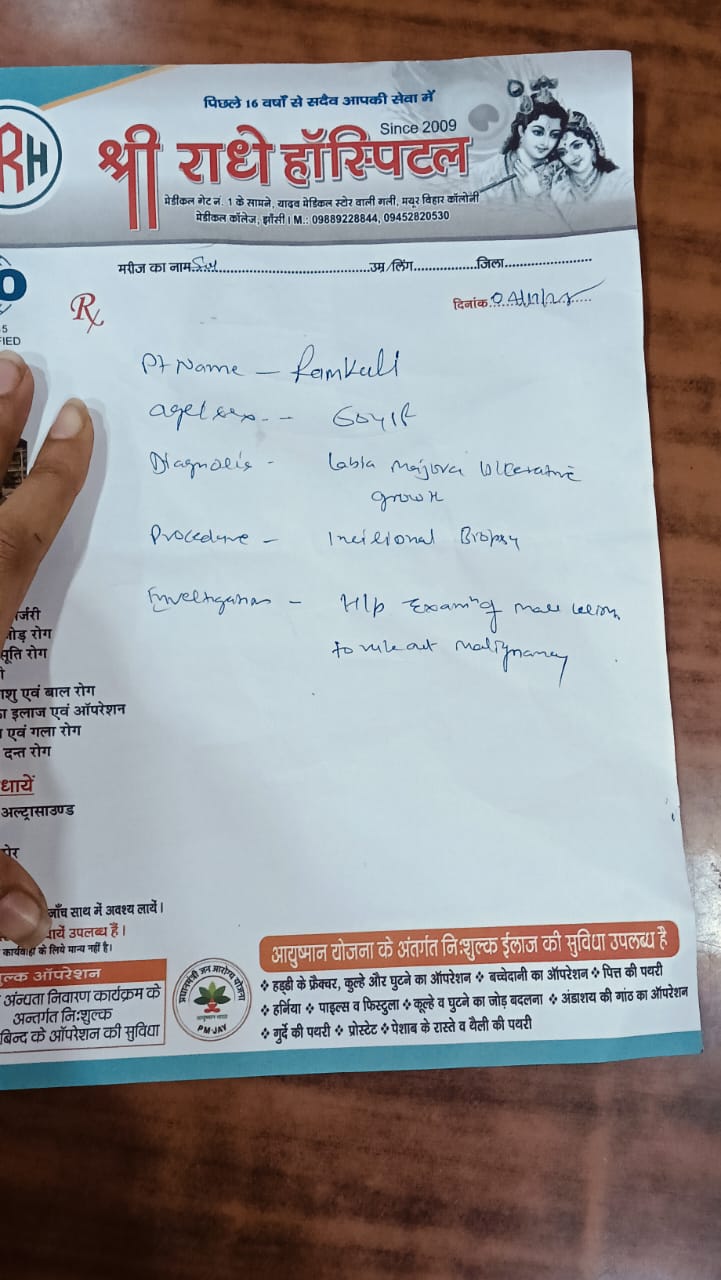 पिछले 16 वर्षों से सदैव आपकी सेवा में
Since 2009
RH
श्री राधे हॉस्पिटल
मेडीकल गेट नं. 1 के सामने, यादव मेडिकल स्टोर वाली गली, मयूर विहार कॉलोनी
मेडीकल कॉलेज, झाँसी। M.: 09889228844, 09452820530
मरीज का नाम..........उम्र/लिंग..........जिला..........
दिनांक
Rx
5
FIED
Pt Name - Ramkali
age/sex -- 60y/F
Diagnosis - labia majora ulcerative
growth
Procedure - Incisional Biopsy
Investigations - H/p Exam of
to rule out malignancy
र्जरी
जोड़ रोग
सूति रोग
ी
शु एवं बाल रोग
ा इलाज एवं ऑपरेशन
एवं गला रोग
दन्त रोग
धायें
अल्ट्रासाउण्ड
जाँच साथ में अवश्य लायें।
ायें उपलब्ध हैं।
कार्यवाही के लिये मान्य नहीं है।
ुल्क ऑपरेशन
अंन्धता निवारण कार्यक्रम के
अन्तर्गत निःशुल्क
बिन्द के ऑपरेशन की सुविधा
PM-JAY
आयुष्मान योजना के अंतर्गत निःशुल्क ईलाज की सुविधा उपलब्ध है
❖ हड्डी के फ्रैक्चर, कुल्हे और घुटने का ऑपरेशन ❖ बच्चेदानी का ऑपरेशन ❖ पित्त की पथरी
❖ हर्निया ❖ पाइल्स व फिस्टुला ❖ कूल्हे व घुटने का जोड़ बदलना ❖ अंडाशय की गांठ का ऑपरेशन
❖ गुर्दे की पथरी ❖ प्रोस्टेट ❖ पेशाब के रास्ते व थैली की पथरी